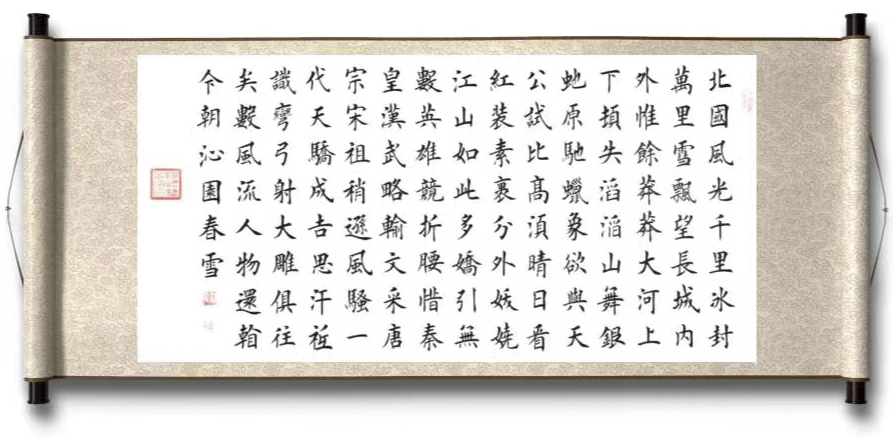 北國風光千里冰封
萬里雪飄望長城內
外惟餘莽莽大河上
下頓失滔滔山舞銀
虵原馳蠟象欲與天
公試比髙須晴日看
紅裝素裹分外妖嬈
江山如此多嬌引無
數英雄競折腰惜秦
皇漢武略輸文采唐
宗宋祖稍遜風騷一
代天驕成吉思汗祇
識彎弓射大雕俱往
矣數風流人物還
今朝沁園春雪